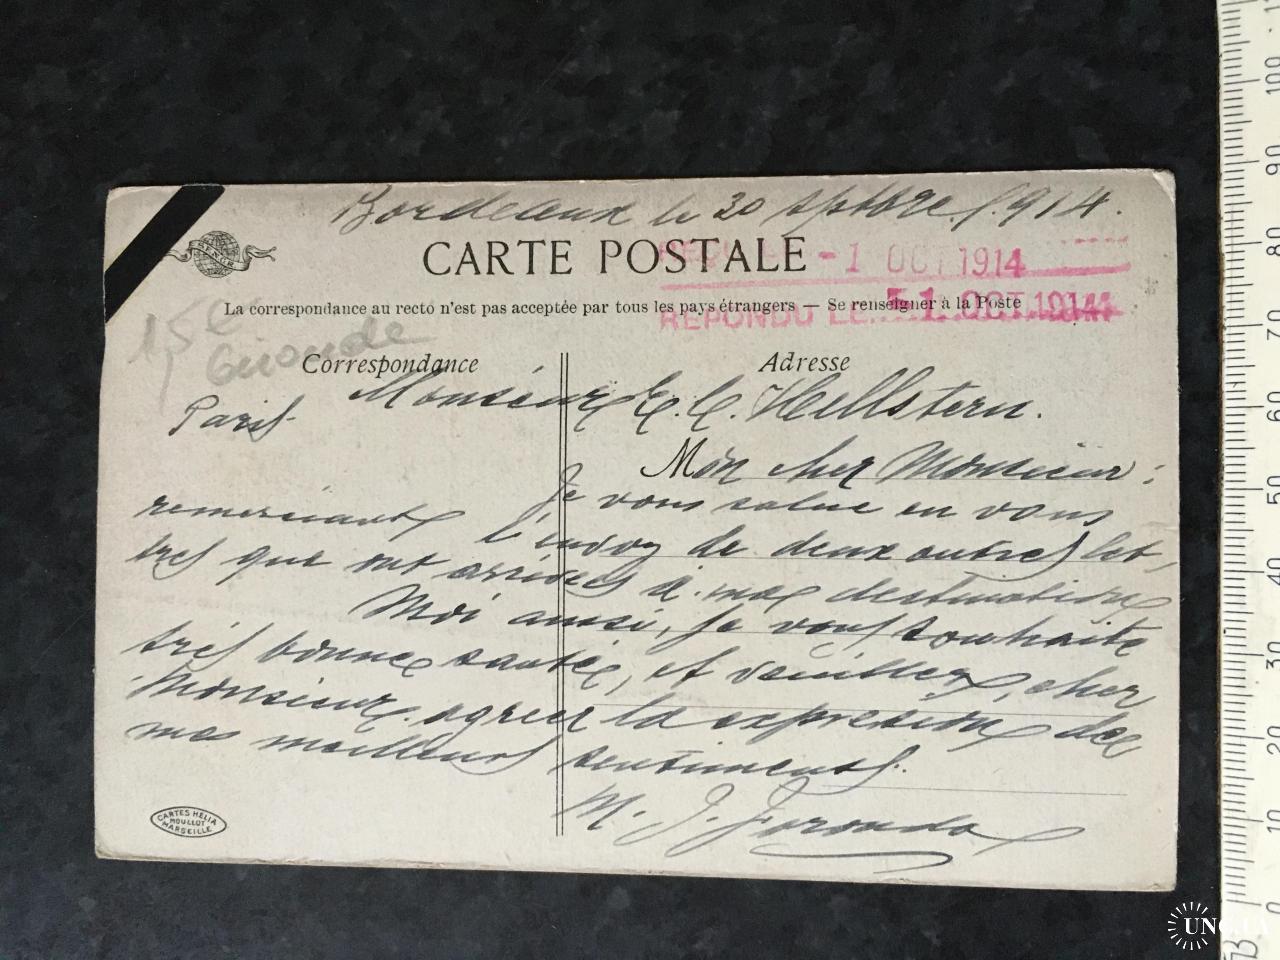 Bordeaux le 20 sptbre. 1914.
CARTE POSTALE
REÇU -1 OCT 1914
La correspondance au recto n'est pas acceptée par tous les pays étrangers — Se renseigner à la Poste
RÉPONDU LE 1 OCT 1914
15e
Gironde
Correspondance
Adresse
Monsieur E. C. Hellstern.
Paris
Mon cher Monsieur:
Je vous salue en vous
remerciant l'envoy de deux autres let,
tres que ont arrivées à ma destination
Moi aussi, je vous souhaite
très bonne santée, et veuillez, cher
Monsieur agreer la expresion de
mes meilleurs sentiments.
M. J.
CARTES HELIA
MOULLOT
MARSEILLE
0 10 20 30 40 50 60 70 80 90 100
UNC.UA